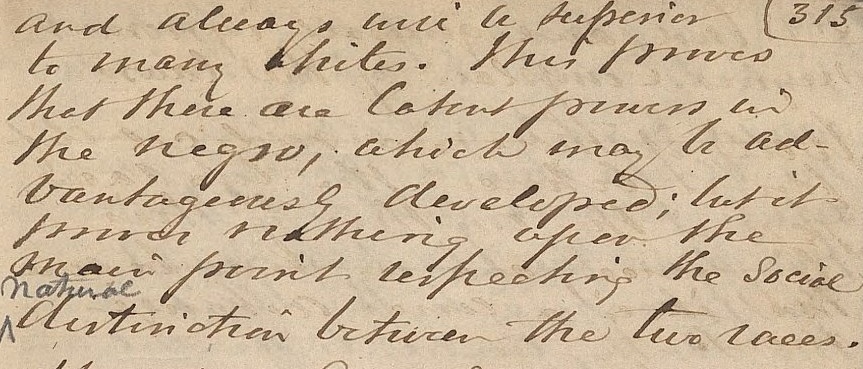 and always will be superior (315
to many whites. This proves
that there are latent powers in
the negro, which may be ad-
vantageously developed; but it
proves nothing upon the
main point respecting the social
natural
distinction between the two races.